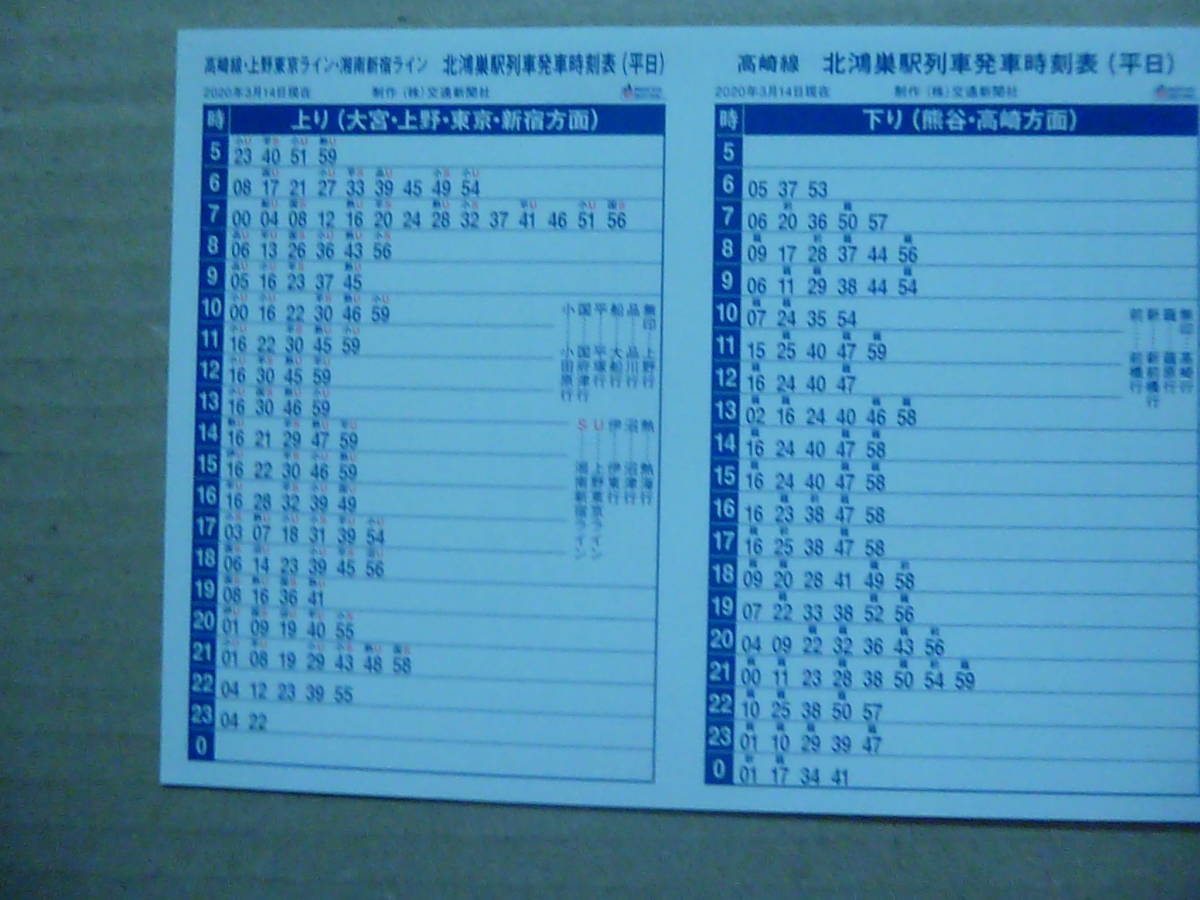 高崎線・上野東京ライン・湘南新宿ライン 北鴻巣駅列車発車時刻表(平日)
2020年3月14日現在 制作 (株)交通新聞社
時 上り(大宮・上野・東京・新宿方面)
5 23 40 51 59
6 08 17 21 27 33 39 45 49 54
7 00 04 08 12 16 20 24 28 32 37 41 46 51 56
8 06 13 26 36 43 56
9 05 16 23 37 45
10 00 16 22 30 46 59
11 16 22 30 45 59
12 16 30 45 59
13 16 30 46 59
14 16 21 29 47 59
15 16 22 30 46 59
16 16 28 32 39 49
17 03 07 18 31 39 54
18 06 14 23 39 45 56
19 08 16 36 41
20 01 09 19 40 55
21 01 08 19 29 43 48 58
22 04 12 23 39 55
23 04 22
0
無印…上野行
品……品川行
船……大船行
平……平塚行
国……国府津行
小……小田原行
熱……熱海行
沼……沼津行
伊……伊東行
U……上野東京ライン
S……湘南新宿ライン
高崎線 北鴻巣駅列車発車時刻表(平日)
2020年3月14日現在 制作 (株)交通新聞社
時 下り(熊谷・高崎方面)
5
6 05 37 53
7 06 20 36 50 57
8 09 17 28 37 44 56
9 06 11 29 38 44 54
10 07 24 35 54
11 15 25 40 47 59
12 16 24 40 47
13 02 16 24 40 46 58
14 16 24 40 47 58
15 16 24 40 47 58
16 16 23 38 47 58
17 16 25 38 47 58
18 09 20 28 41 49 58
19 07 22 33 38 52 56
20 04 09 22 32 36 43 56
21 00 11 23 28 38 50 54 59
22 10 25 38 50 57
23 01 10 29 39 47
0 01 17 34 41
無印…高崎行
籠……籠原行
新……新前橋行
前……前橋行